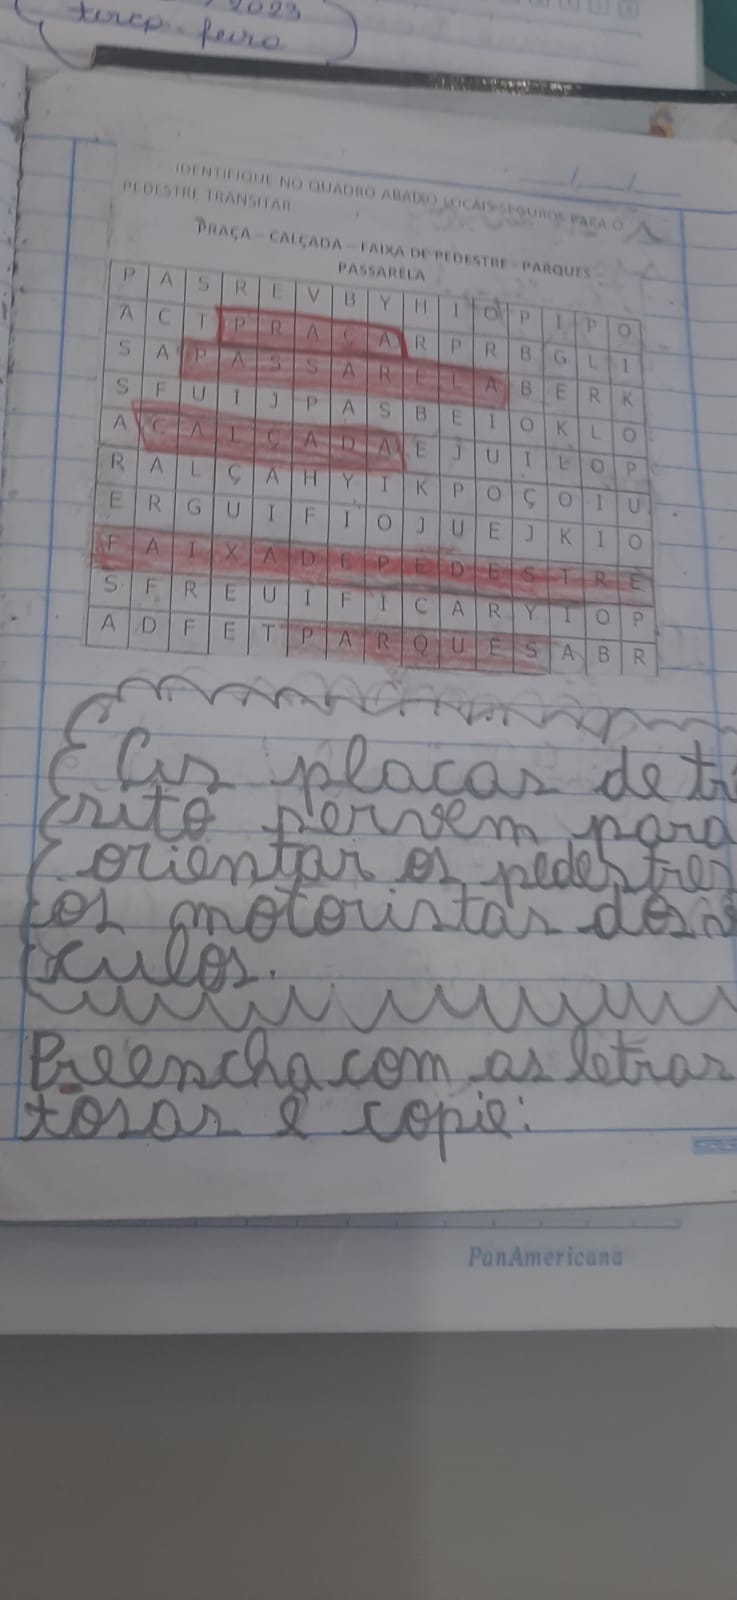 2023
terça-feira
IDENTIFIQUE NO QUADRO ABAIXO LOCAIS SEGUROS PARA O
PEDESTRE TRANSITAR.
PRAÇA - CALÇADA - FAIXA DE PEDESTRE - PARQUES
PASSARELA
P A S R E V B Y H I O P I P O
A C T P R A Ç A R P R B G L I
S A P A S S A R E L A B E R K
S F U I J P A S B E I O K L O
A C A L Ç A D A E J U I L O P
R A L Ç A H Y I K P O Ç O I U
E R G U I F I O J U E J K I O
F A I X A D E P E D E S T R E
S F R E U I F I C A R Y I O P
A D F E T P A R Q U E S A B R
As placas de tr
sito servem para
orientar os pedestres
os motoristas dos
culos.
Preencha com as letras
tosas e copie:
PanAmericana